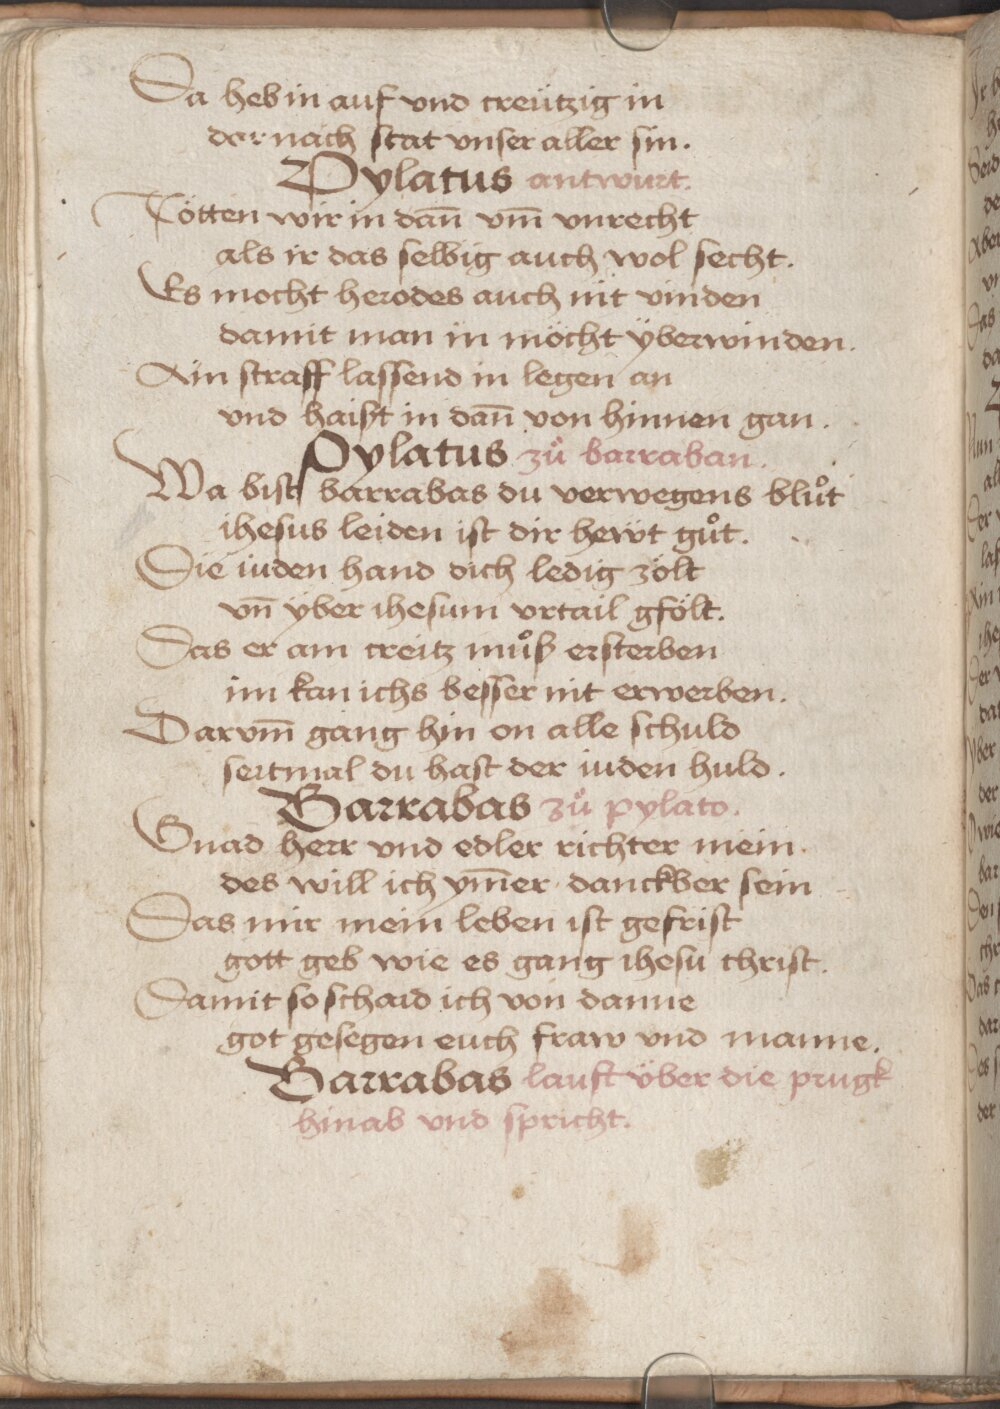 Da heb in auf vnd creützig in
dar nach stat vnser aller sin.
Pylatus antwurt.
Tötten wir in dan̄ vm̄ vnrecht
als ir das selbig auch wol secht.
Es mocht herodes auch nit vinden
damit man in möcht ÿberwinden.
Ain straff lassend in legen an
vnd haist in dan̄ von hinnen gan.
Pylatus zů barraban.
Wa bist barrabas du verwegens blůt
ihesus leiden ist dir hewt gůt.
Die iuden hand dich ledig zölt
vn̄ ÿber ihesum vrtail gfölt.
Das er am creitz můß ersterben
im kan ichs besser nit erwerben.
Darvm̄ gang hin on alle schuld
seitmal du hast der iuden huld.
Barrabas zů pylato.
Gnad herr vnd edler richter mein
des will ich ym̄er danckber sein
Das mir mein leben ist gefrist
gott geb wie es gang ihesu christ.
Damit so schaid ich von danne
got gesegen euch fraw vnd manne.
Barrabas lauft über die prugk
hinab vnd spricht.